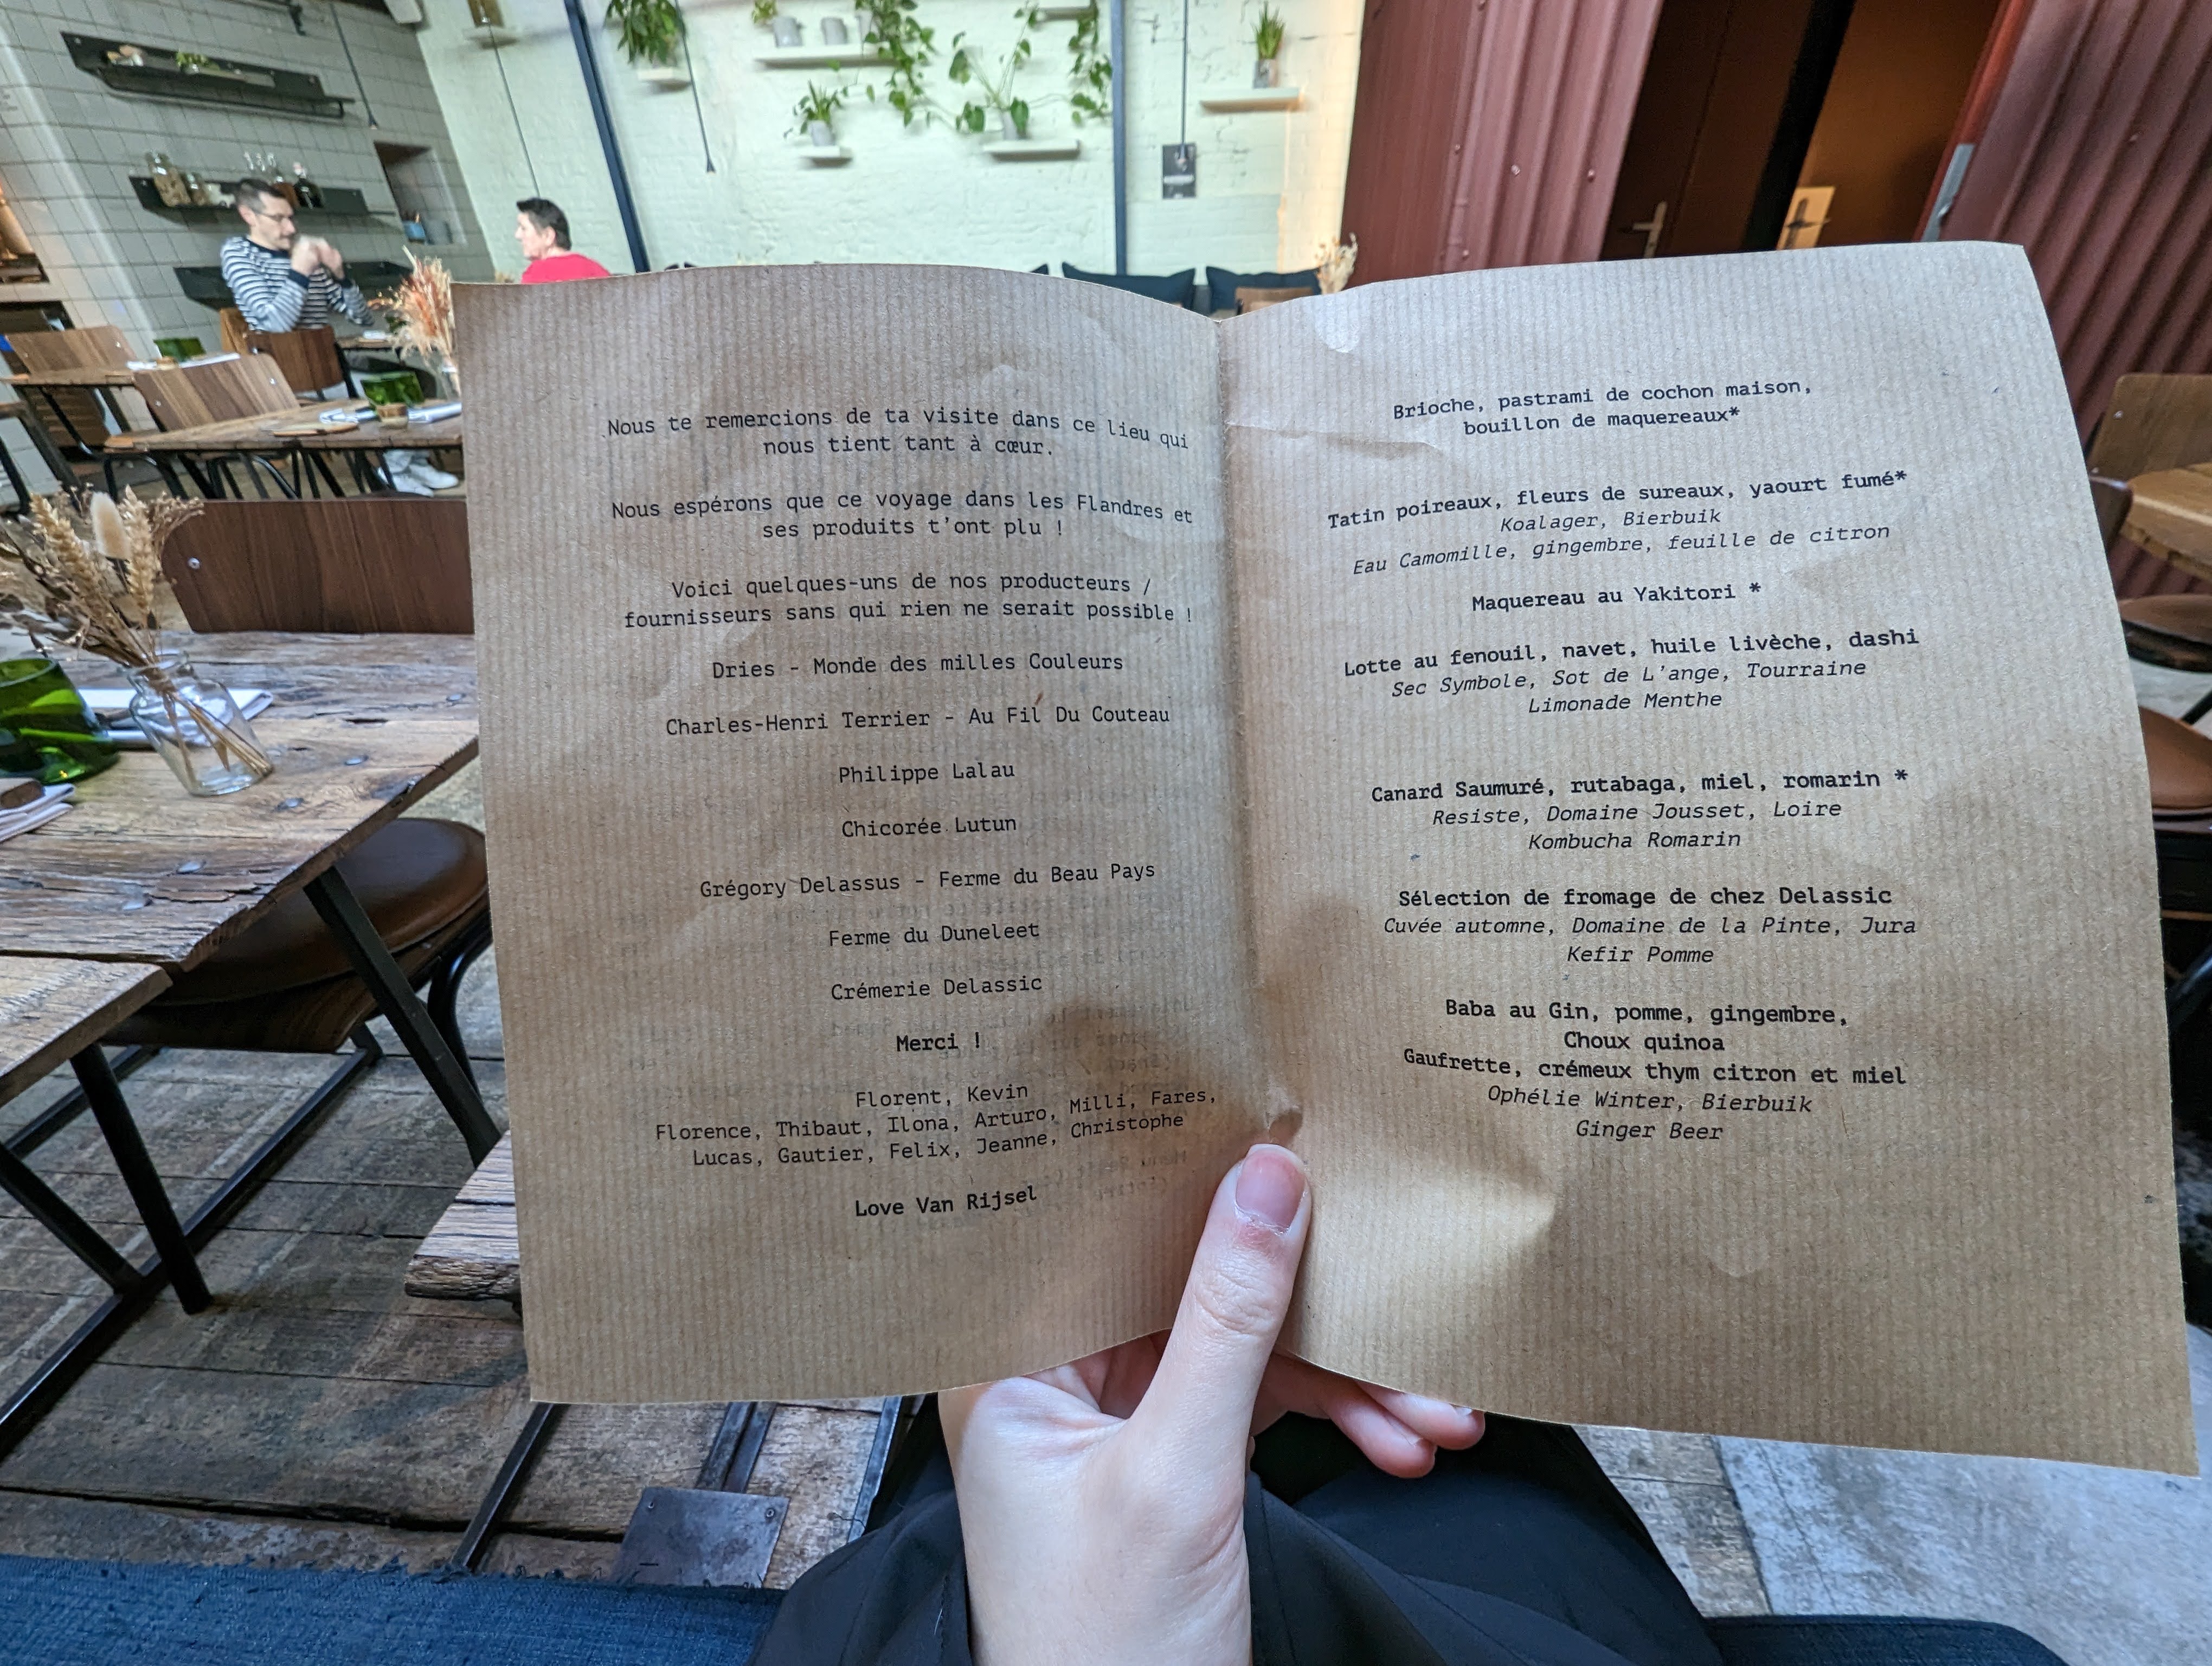 Nous te remercions de ta visite dans ce lieu qui
nous tient tant à cœur.
Nous espérons que ce voyage dans les Flandres et
ses produits t'ont plu !
Voici quelques-uns de nos producteurs /
fournisseurs sans qui rien ne serait possible !
Dries - Monde des milles Couleurs
Charles-Henri Terrier - Au Fil Du Couteau
Philippe Lalau
Chicorée Lutun
Grégory Delassus - Ferme du Beau Pays
Ferme du Duneleet
Crémerie Delassic
Merci !
Florent, Kevin
Florence, Thibaut, Ilona, Arturo, Milli, Fares,
Lucas, Gautier, Felix, Jeanne, Christophe
Love Van Rijsel
Brioche, pastrami de cochon maison,
bouillon de maquereaux*
Tatin poireaux, fleurs de sureaux, yaourt fumé*
Koalager, Bierbuik
Eau Camomille, gingembre, feuille de citron
Maquereau au Yakitori *
Lotte au fenouil, navet, huile livèche, dashi
Sec Symbole, Sot de L'ange, Tourraine
Limonade Menthe
Canard Saumuré, rutabaga, miel, romarin *
Resiste, Domaine Jousset, Loire
Kombucha Romarin
Sélection de fromage de chez Delassic
Cuvée automne, Domaine de la Pinte, Jura
Kefir Pomme
Baba au Gin, pomme, gingembre,
Choux quinoa
Gaufrette, crémeux thym citron et miel
Ophélie Winter, Bierbuik
Ginger Beer